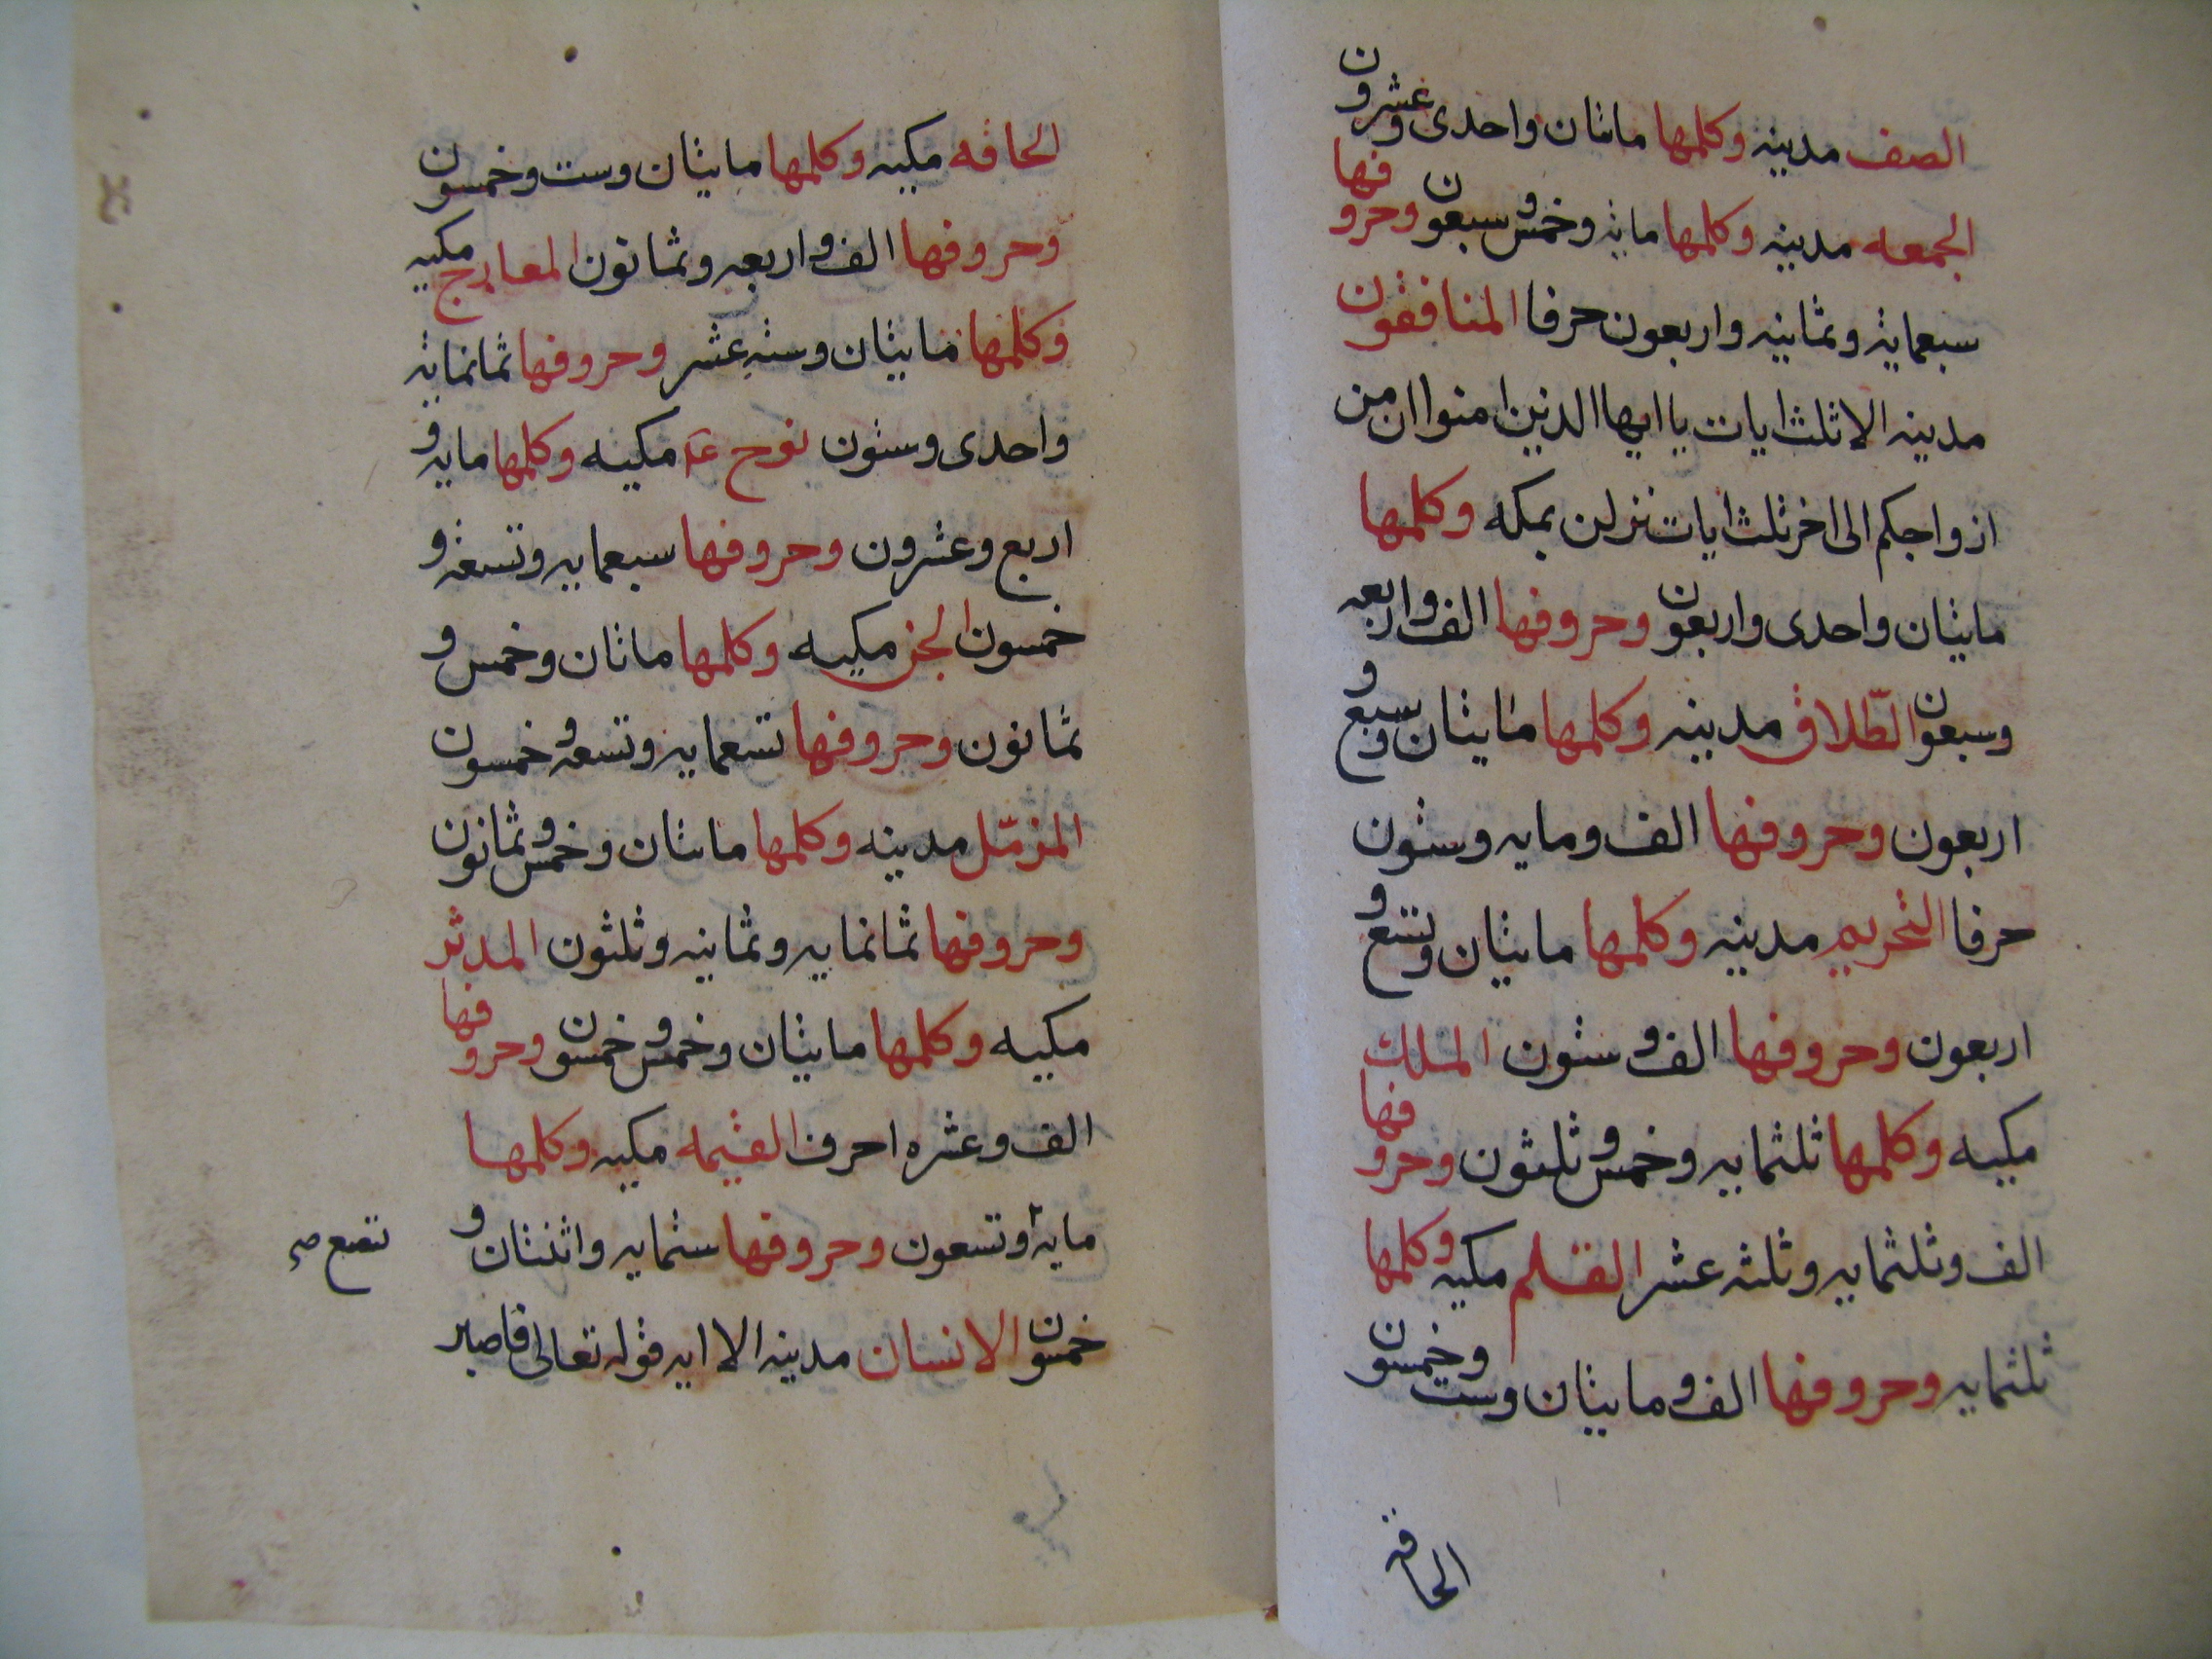 الصف مدنيه وكلمها مائتان واحدى وعشرون
الجمعه مدنيه وكلمها مايه وخمس وسبعون وحروفها
سبعمايه وثمانيه واربعون حرفا المنافقون
مدنيه الا ثلث ايات يا ايها الذين امنوا ان من
ازواجكم الى اخر ثلث ايات نزلن بمكه وكلمها
مايتان واحدى واربعون وحروفها الف واربعه
وسبعون الطّلاق مدنيه وكلمها مايتان وسبع و
اربعون وحروفها الف ومايه وستون
حرفا التحريم مدنيه وكلمها مايتان وتسع و
اربعون وحروفها الف وستون الملك
مكيه وكلمها ثلثمايه وخمس وثلثون وحروفها
الف وثلثمايه وثلثه عشر القلم مكيه وكلمها
ثلثمايه وحروفها الف ومايتان وست وخمسون
الحاقه
الحاقه مكيه وكلمها مايتان وست وخمسون
وحروفها الف واربعه وثمانون المعارج مكيه
وكلمها مايتان وسته عشر وحروفها ثمانمايه
واحدى وستون نوح عم مكيه وكلمها مايه و
اربع وعشرون وحروفها سبعمايه وتسعه و
خمسون الجن مكيه وكلمها ماتان وخمس و
ثمانون وحروفها تسعمايه وتسعه وخمسون
المزمّل مدنيه وكلمها مايتان وخمس وثمانون
وحروفها ثمانمايه وثمانيه وثلثون المدثر
مكيه وكلمها مايتان وخمس وخمسون وحروفها
الف وعشره احرف القيمه مكيه وكلمها
مايه وتسعون وحروفها ستمايه واثنتان و
تسع صح
خمسون الانسان مدنيه الا ايه قوله تعالى فاصبر